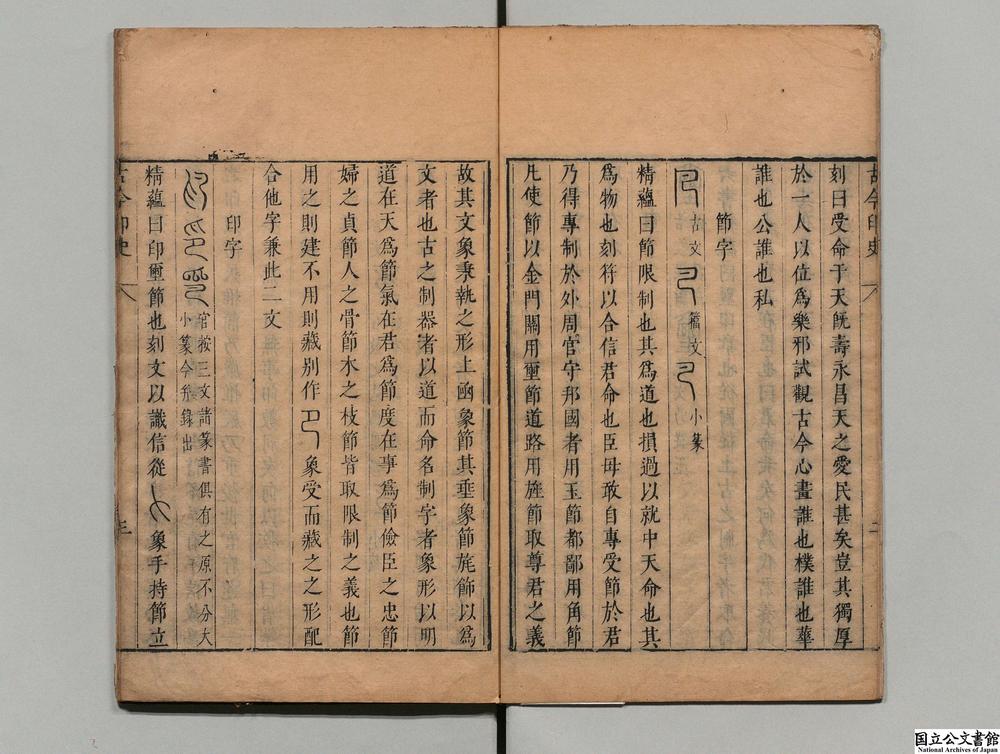 刻曰受命于天既壽永昌天之愛民甚矣豈其獨厚
於一人以位爲樂邪試觀古今心畫誰也樸誰也華
誰也公誰也私
節字
古文
籀文
小篆
精蘊曰節限制也其爲道也損過以就中天命也其
爲物也刻符以合信君命也臣毋敢自專受節於君
乃得專制於外周官守邦國者用玉節都鄙用角節
凡使節以金門關用璽節道路用旌節取尊君之義
故其文象秉執之形上函象節其垂象節旄飾以爲
文者也古之制器者以道而命名制字者象形以明
道在天爲節氣在君爲節度在事爲節儉臣之忠節
婦之貞節人之骨節木之枝節皆取限制之義也節
用之則建不用則藏别作
象受而藏之之形配
合他字兼此二文
印字
按三文諸篆書俱有之原不分大
小篆今并錄出
精蘊曰印璽節也刻文以識信從
象手持節立
古今印史
二
古今印史
三
国立公文書館
National Archives of Japan